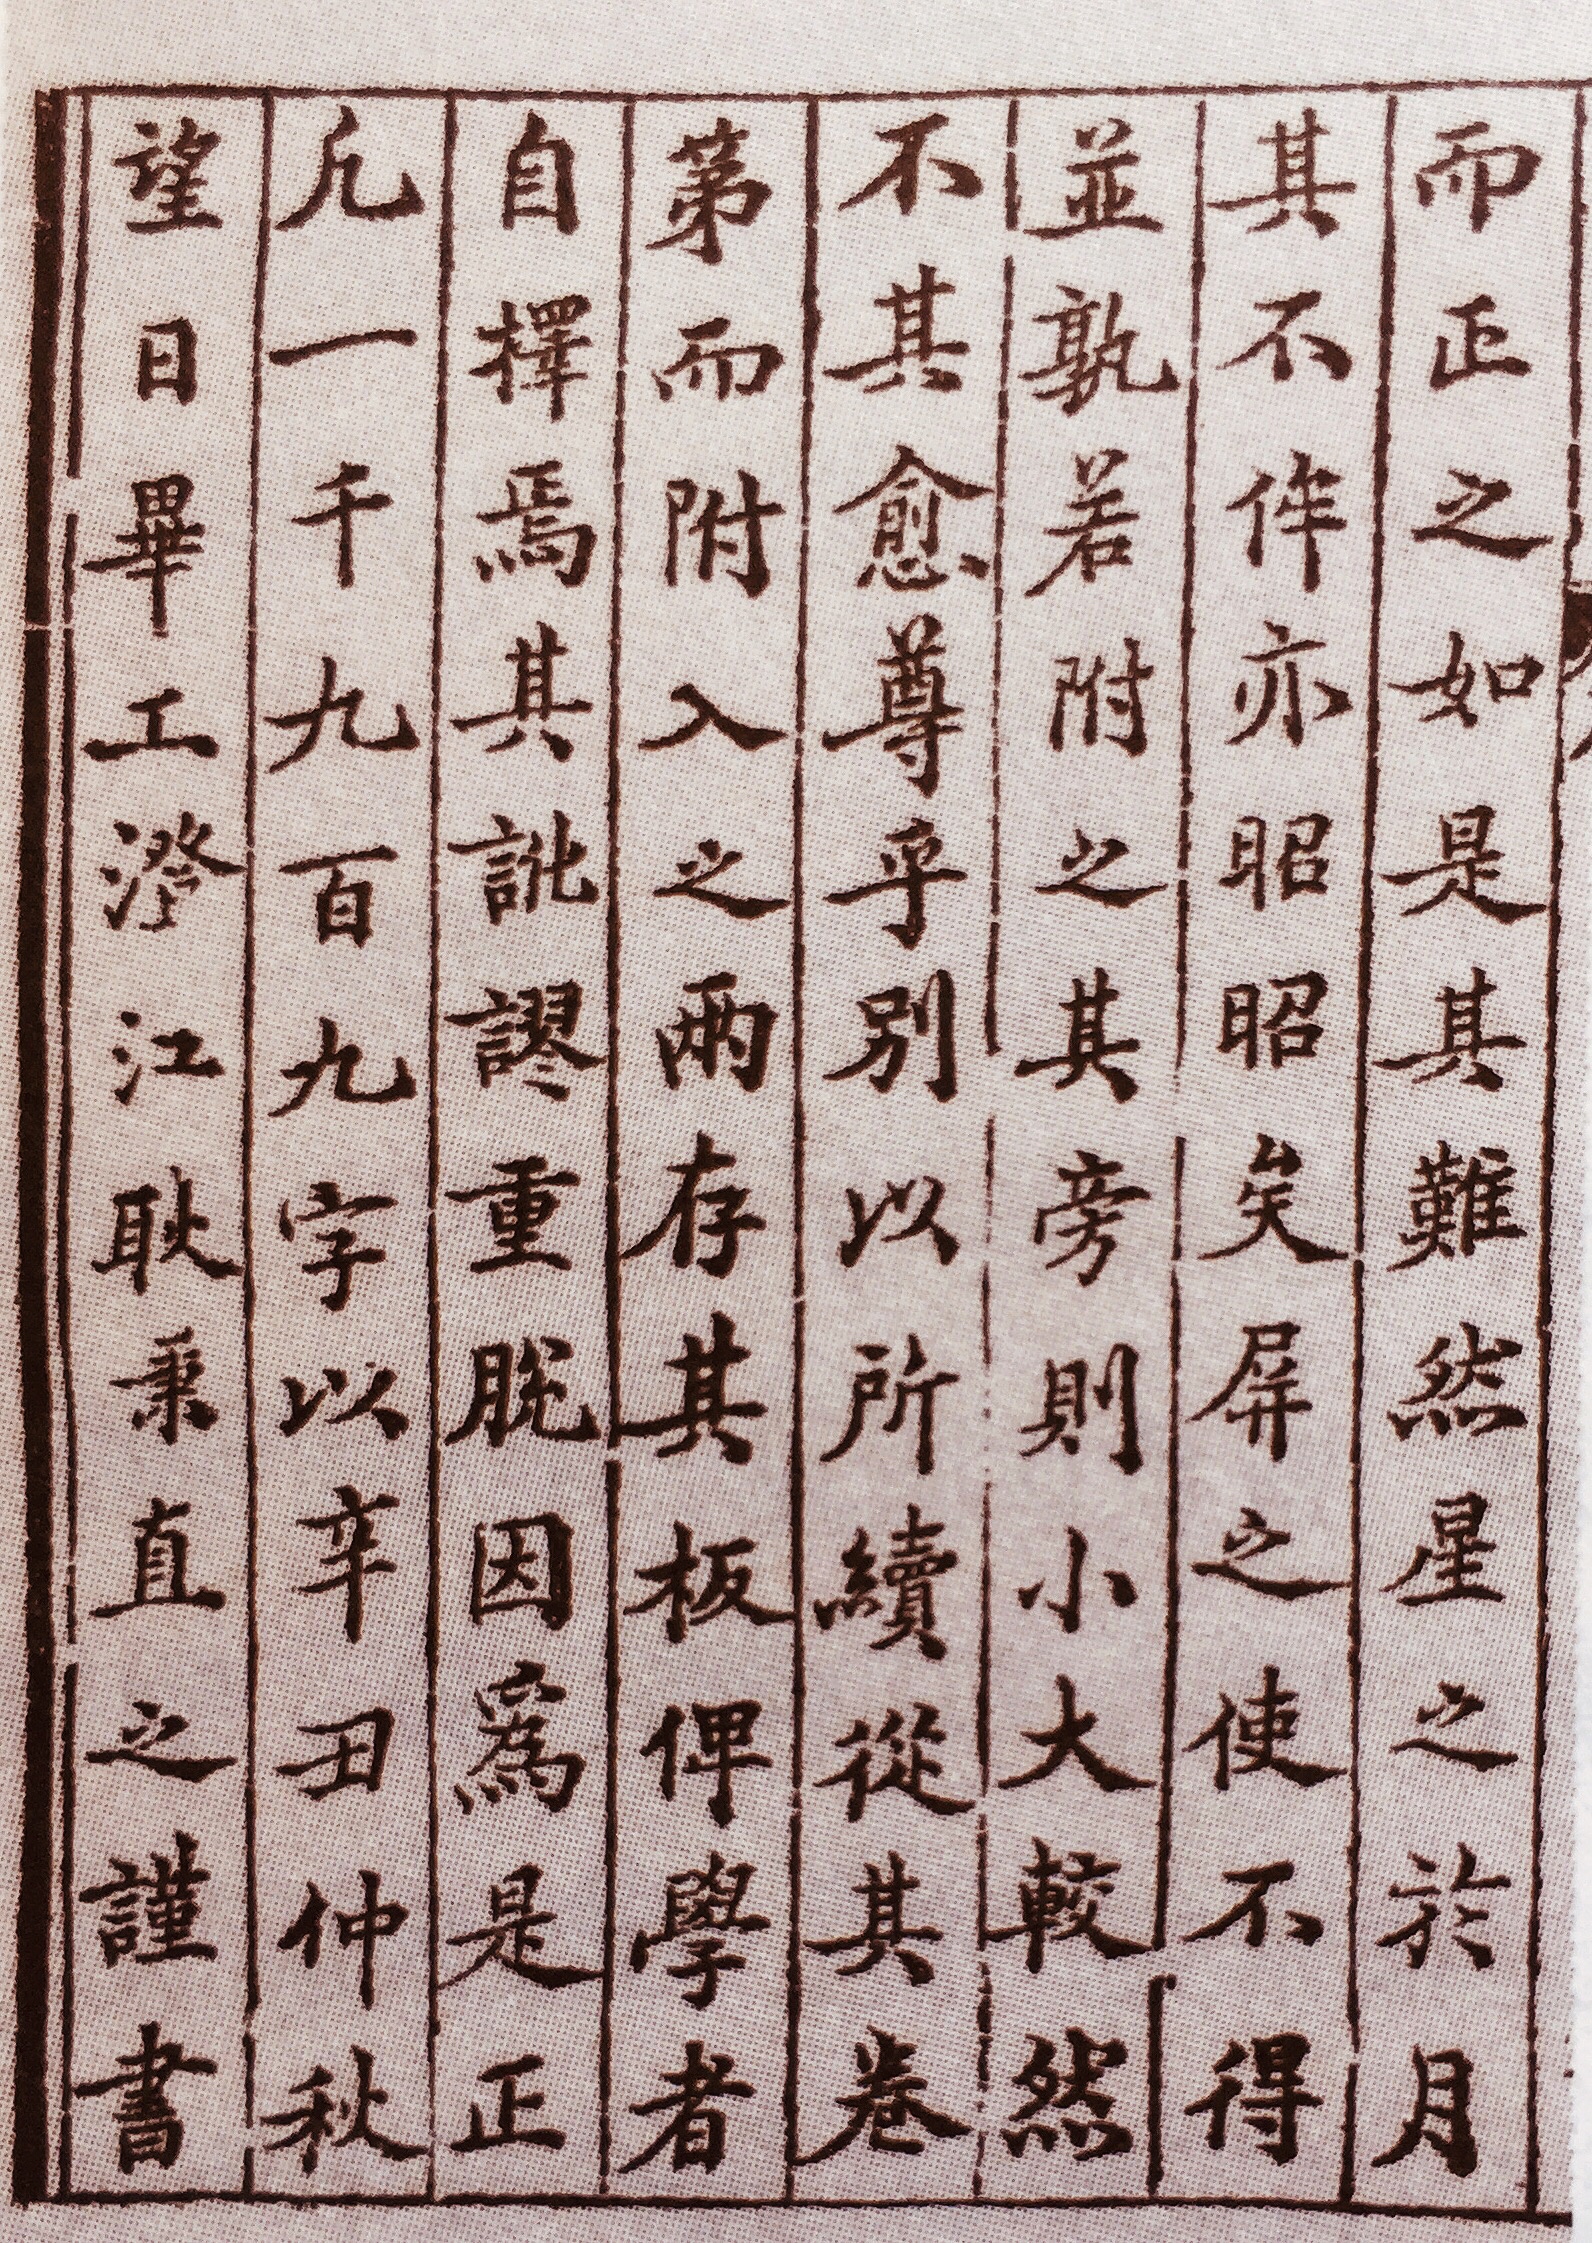 而正之如是其難然星之於月
其不侔亦昭昭矣屏之使不得
並孰若附之其旁則小大較然
不其愈尊乎別以所續從其卷
第而附入之兩存其板俾學者
自擇焉其訛謬重脫因爲是正
凡一千九百九字以辛丑仲秋
望日畢工澄江耿秉直之謹書